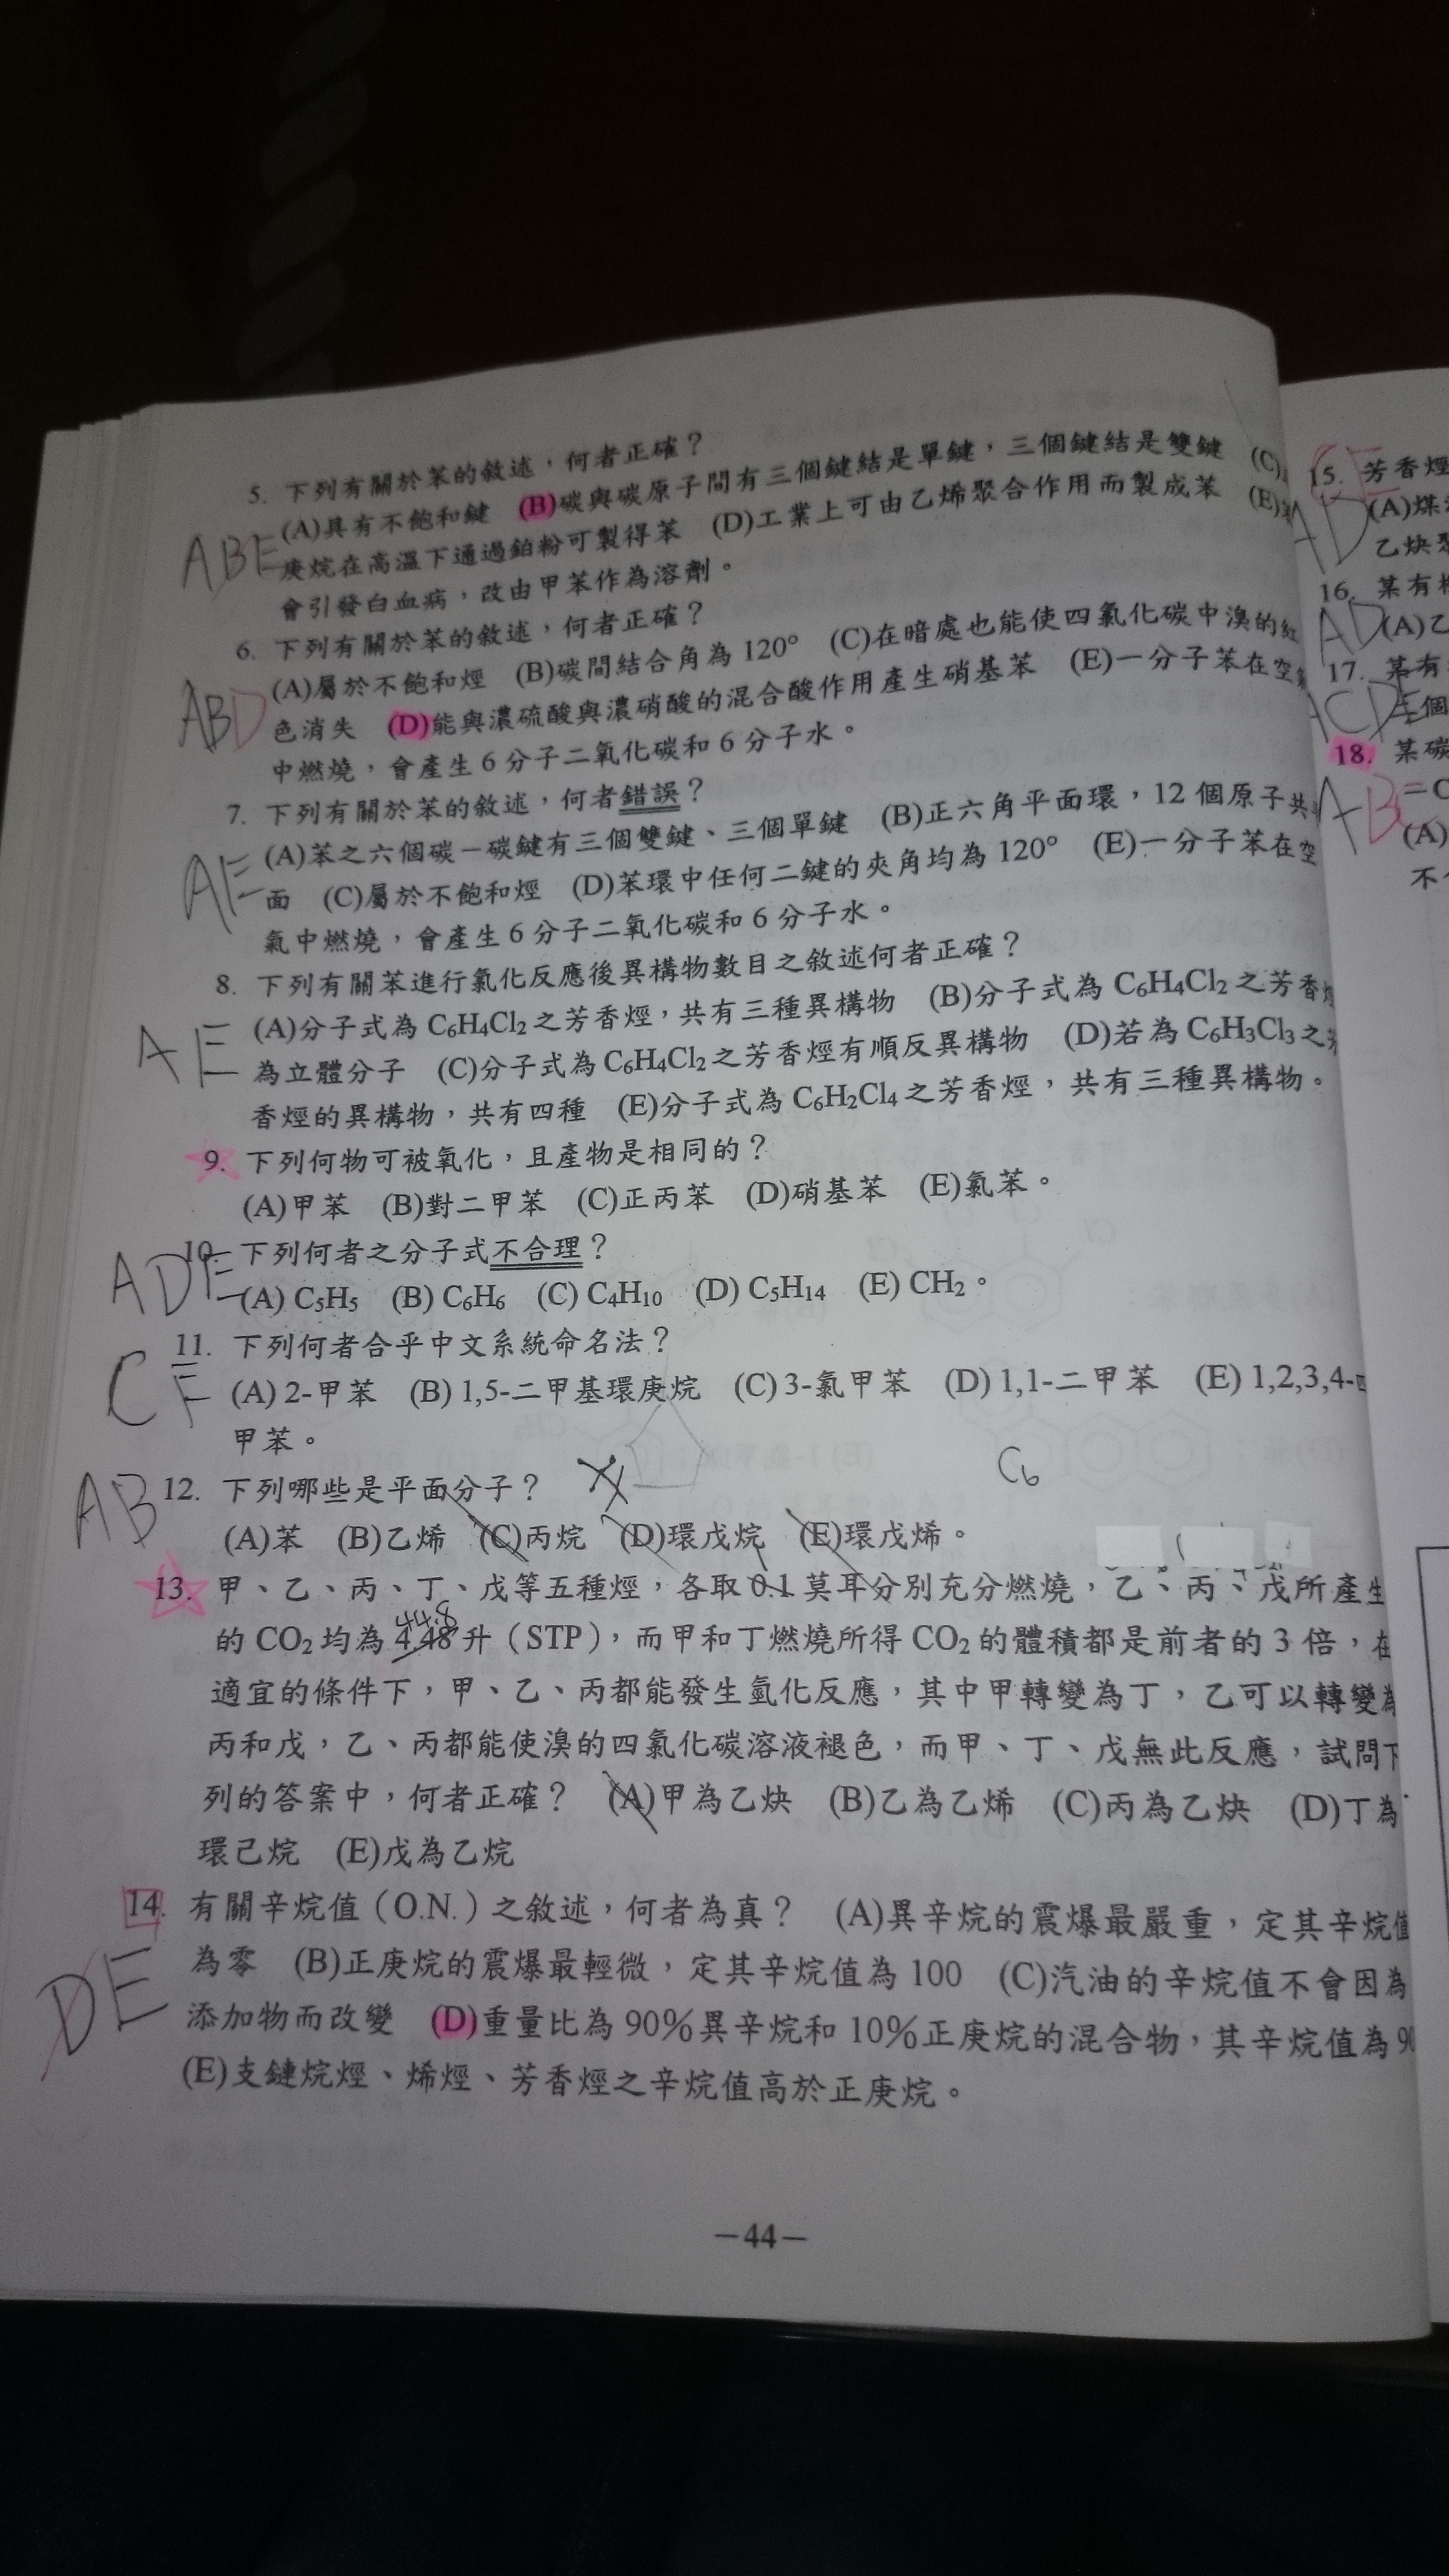 5. 下列有關於苯的敘述，何者正確？
(A)具有不飽和鍵 (B)碳與碳原子間有三個鍵結是單鍵，三個鍵結是雙鍵 (C)
ABE
庚烷在高溫下通過鉑粉可製得苯 (D)工業上可由乙烯聚合作用而製成苯 (E)
會引發白血病，改由甲苯作為溶劑。
6. 下列有關於苯的敘述，何者正確？
(A)屬於不飽和烴 (B)碳間結合角為120° (C)在暗處也能使四氯化碳中溴的紅
ABD
色消失 (D)能與濃硫酸與濃硝酸的混合酸作用產生硝基苯 (E)一分子苯在空氣
中燃燒，會產生6分子二氧化碳和6分子水。
7. 下列有關於苯的敘述，何者錯誤？
(A)苯之六個碳－碳鍵有三個雙鍵、三個單鍵 (B)正六角平面環，12個原子共
AE
面 (C)屬於不飽和烴 (D)苯環中任何二鍵的夾角均為120° (E)一分子苯在空
氣中燃燒，會產生6分子二氧化碳和6分子水。
8. 下列有關苯進行氯化反應後異構物數目之敘述何者正確？
(A)分子式為C6H4Cl2之芳香烴，共有三種異構物 (B)分子式為C6H4Cl2之芳香烴
AE
為立體分子 (C)分子式為C6H4Cl2之芳香烴有順反異構物 (D)若為C6H3Cl3之芳
香烴的異構物，共有四種 (E)分子式為C6H2Cl4之芳香烴，共有三種異構物。
9. 下列何物可被氧化，且產物是相同的？
(A)甲苯 (B)對二甲苯 (C)正丙苯 (D)硝基苯 (E)氯苯。
10. 下列何者之分子式不合理？
ADE
(A) C5H5 (B) C6H6 (C) C4H10 (D) C5H14 (E) CH2。
11. 下列何者合乎中文系統命名法？
CE
(A) 2-甲苯 (B) 1,5-二甲基環庚烷 (C) 3-氯甲苯 (D) 1,1-二甲苯 (E) 1,2,3,4-四
甲苯。
C6
AB
12. 下列哪些是平面分子？
(A)苯 (B)乙烯 (C)丙烷 (D)環戊烷 (E)環戊烯。
13. 甲、乙、丙、丁、戊等五種烴，各取0.1莫耳分別充分燃燒，乙、丙、戊所產生
44.8
的CO2均為4.48升（STP），而甲和丁燃燒所得CO2的體積都是前者的3倍，在
適宜的條件下，甲、乙、丙都能發生氫化反應，其中甲轉變為丁，乙可以轉變為
丙和戊，乙、丙都能使溴的四氯化碳溶液褪色，而甲、丁、戊無此反應，試問下
列的答案中，何者正確？ (A)甲為乙炔 (B)乙為乙烯 (C)丙為乙炔 (D)丁為
環己烷 (E)戊為乙烷
14. 有關辛烷值（O.N.）之敘述，何者為真？ (A)異辛烷的震爆最嚴重，定其辛烷值
為零 (B)正庚烷的震爆最輕微，定其辛烷值為100 (C)汽油的辛烷值不會因為
DE
添加物而改變 (D)重量比為90%異辛烷和10%正庚烷的混合物，其辛烷值為90
(E)支鏈烷烴、烯烴、芳香烴之辛烷值高於正庚烷。
－44－
15. 芳香烴
AD
(A)煤
乙炔聚
16. 某有
AD
(A)乙
17. 某有
ACDE
個
18. 某碳
AB
＝C
(A)
不